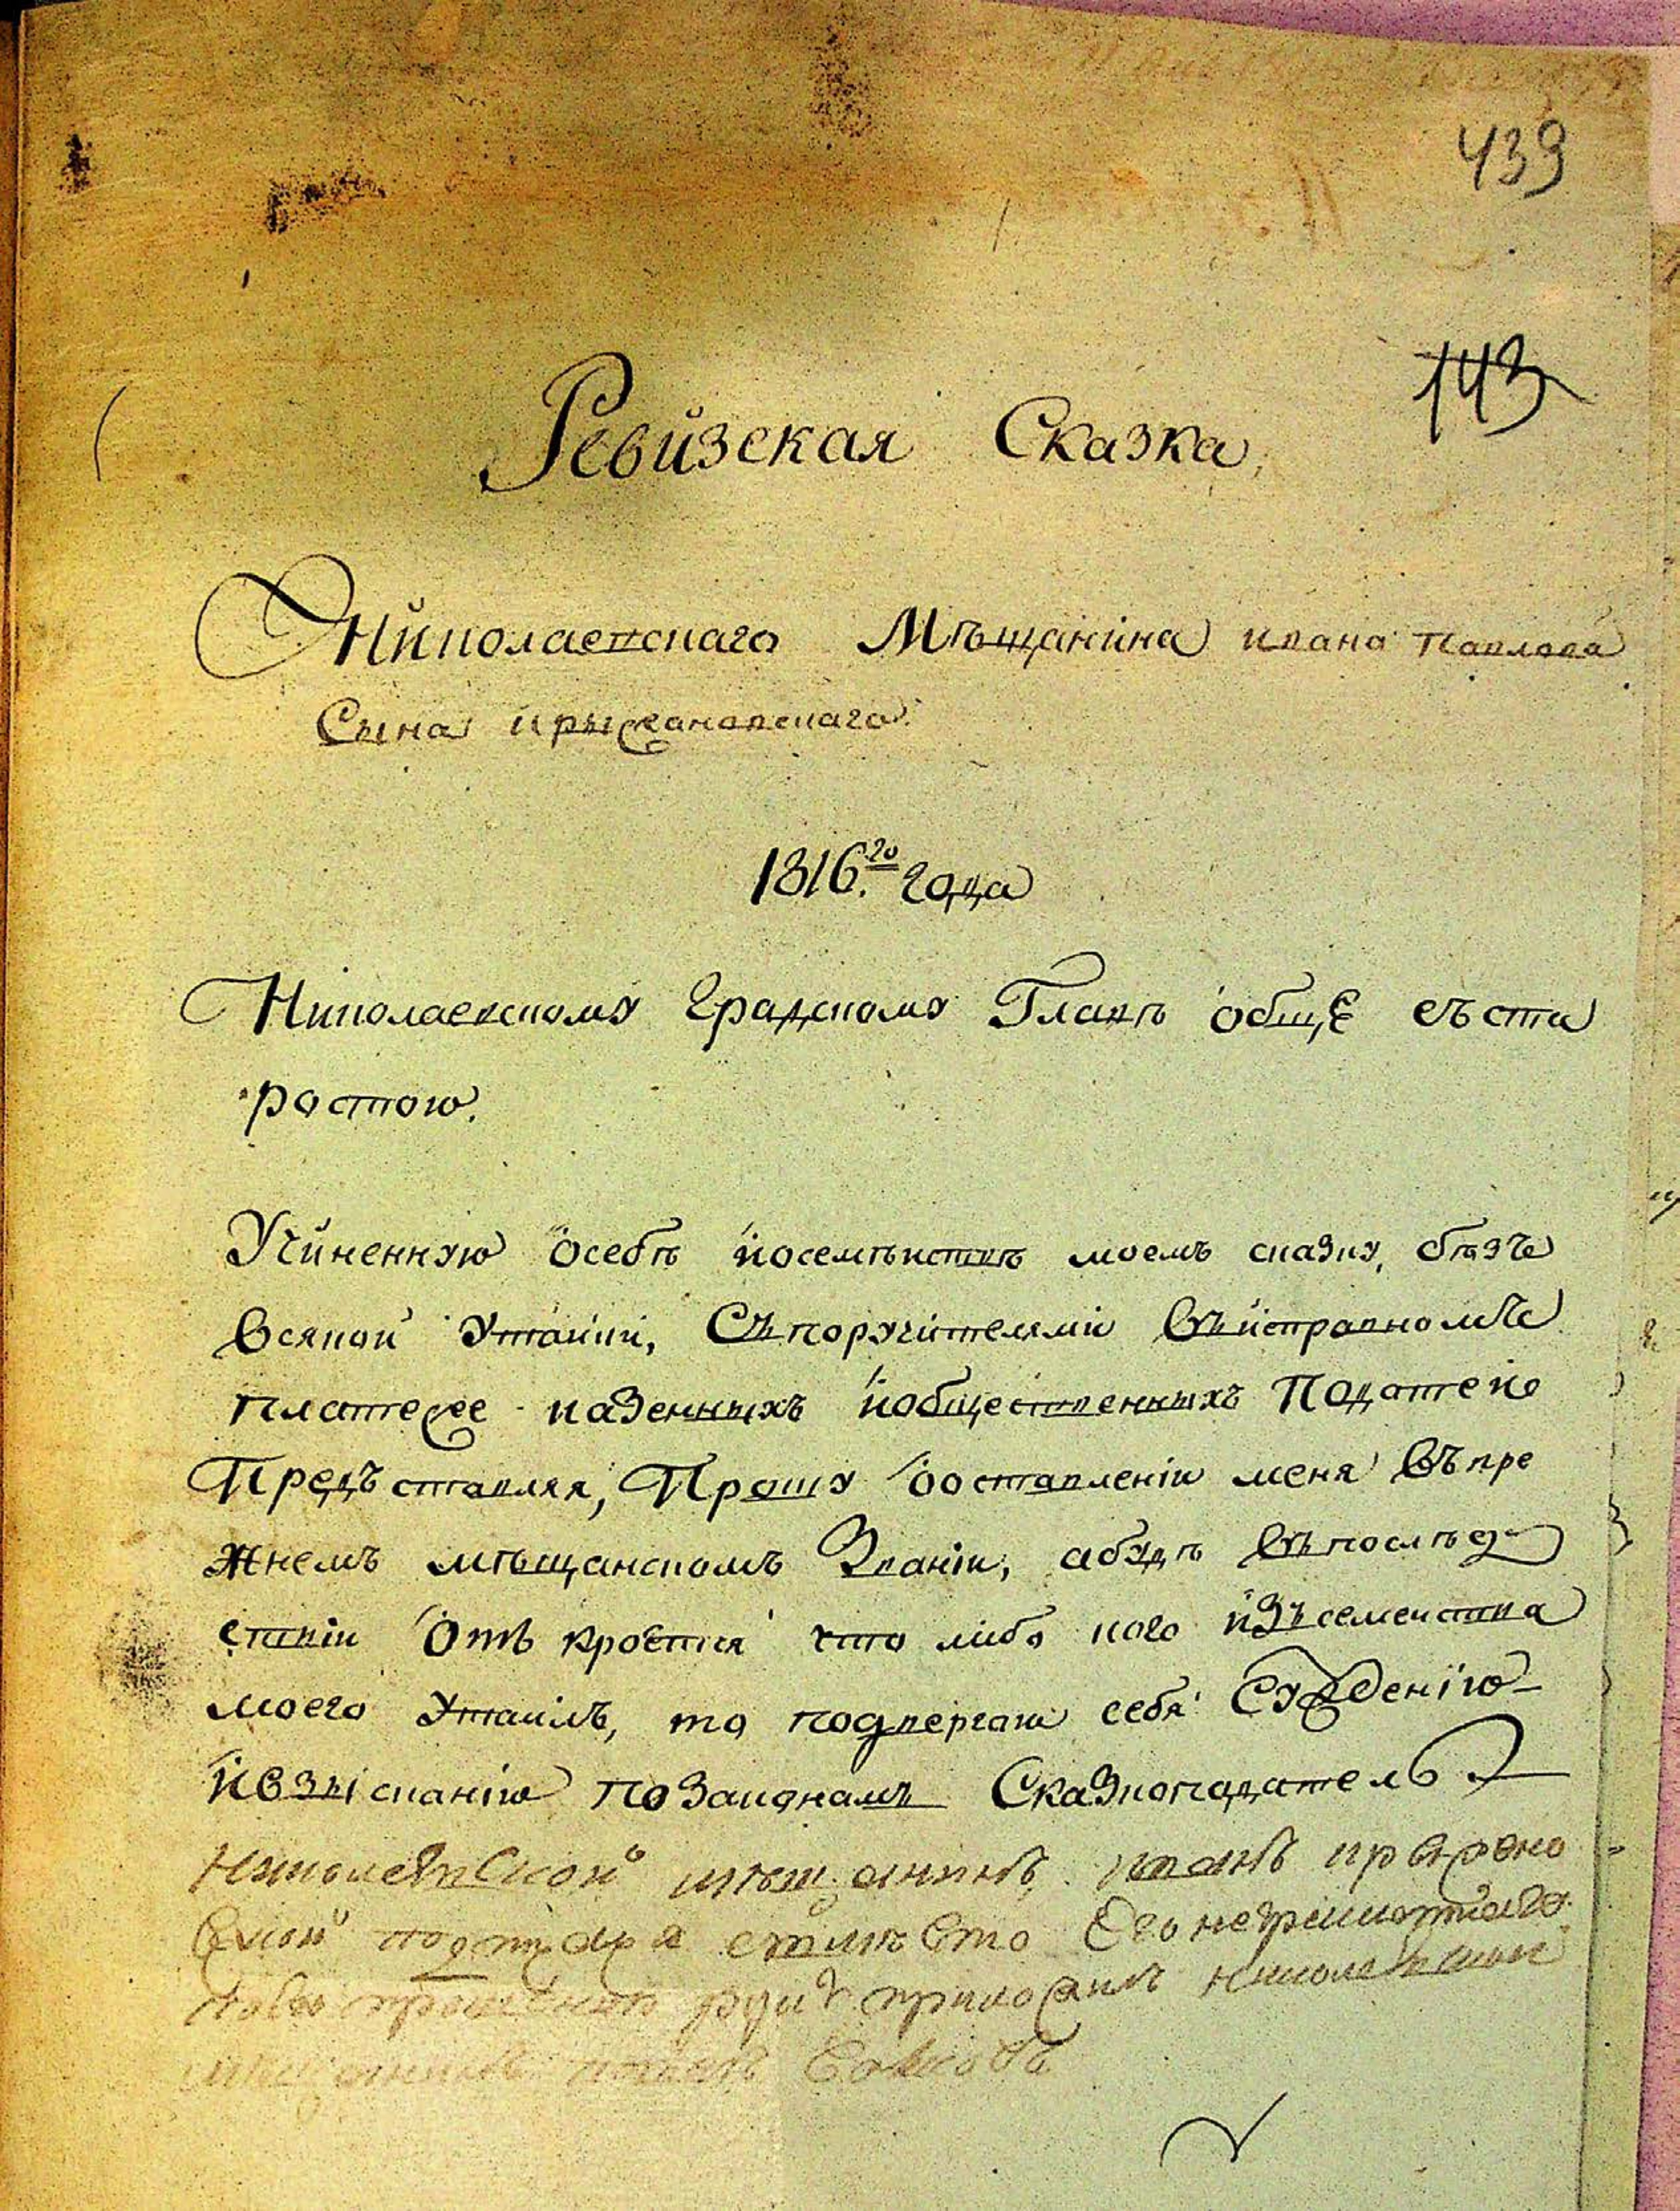 439
143
Ревизская Сказка
Николаевскаго Мѣщанина ивана павлова
Сына крыжановскаго
1816.го года
Николаевскому Градскому Главѣ обще съ ста
ростою.
Учиненную о себѣ и о семѣйствѣ моемъ сказку, бѣзъ
Всякой Утайки, Съ поручителями въ исправномъ
платеже казенныхъ и общественныхъ Податей
Предъставляя, Прошу о оставленіи меня въ пре
жнемъ мѣщанскомъ Званіи, а будѣ въ послѣд
ствіи Отъ кроется что либо кого изъ семейства
моего Утаилъ, то подвергаю себя Сужденію
и взысканію по Законамъ Сказкоподатель
Николаевской мѣщанинъ иванъ крыжано
вской его неграмотнаго
руку приложилъ николаевской
мещанинъ